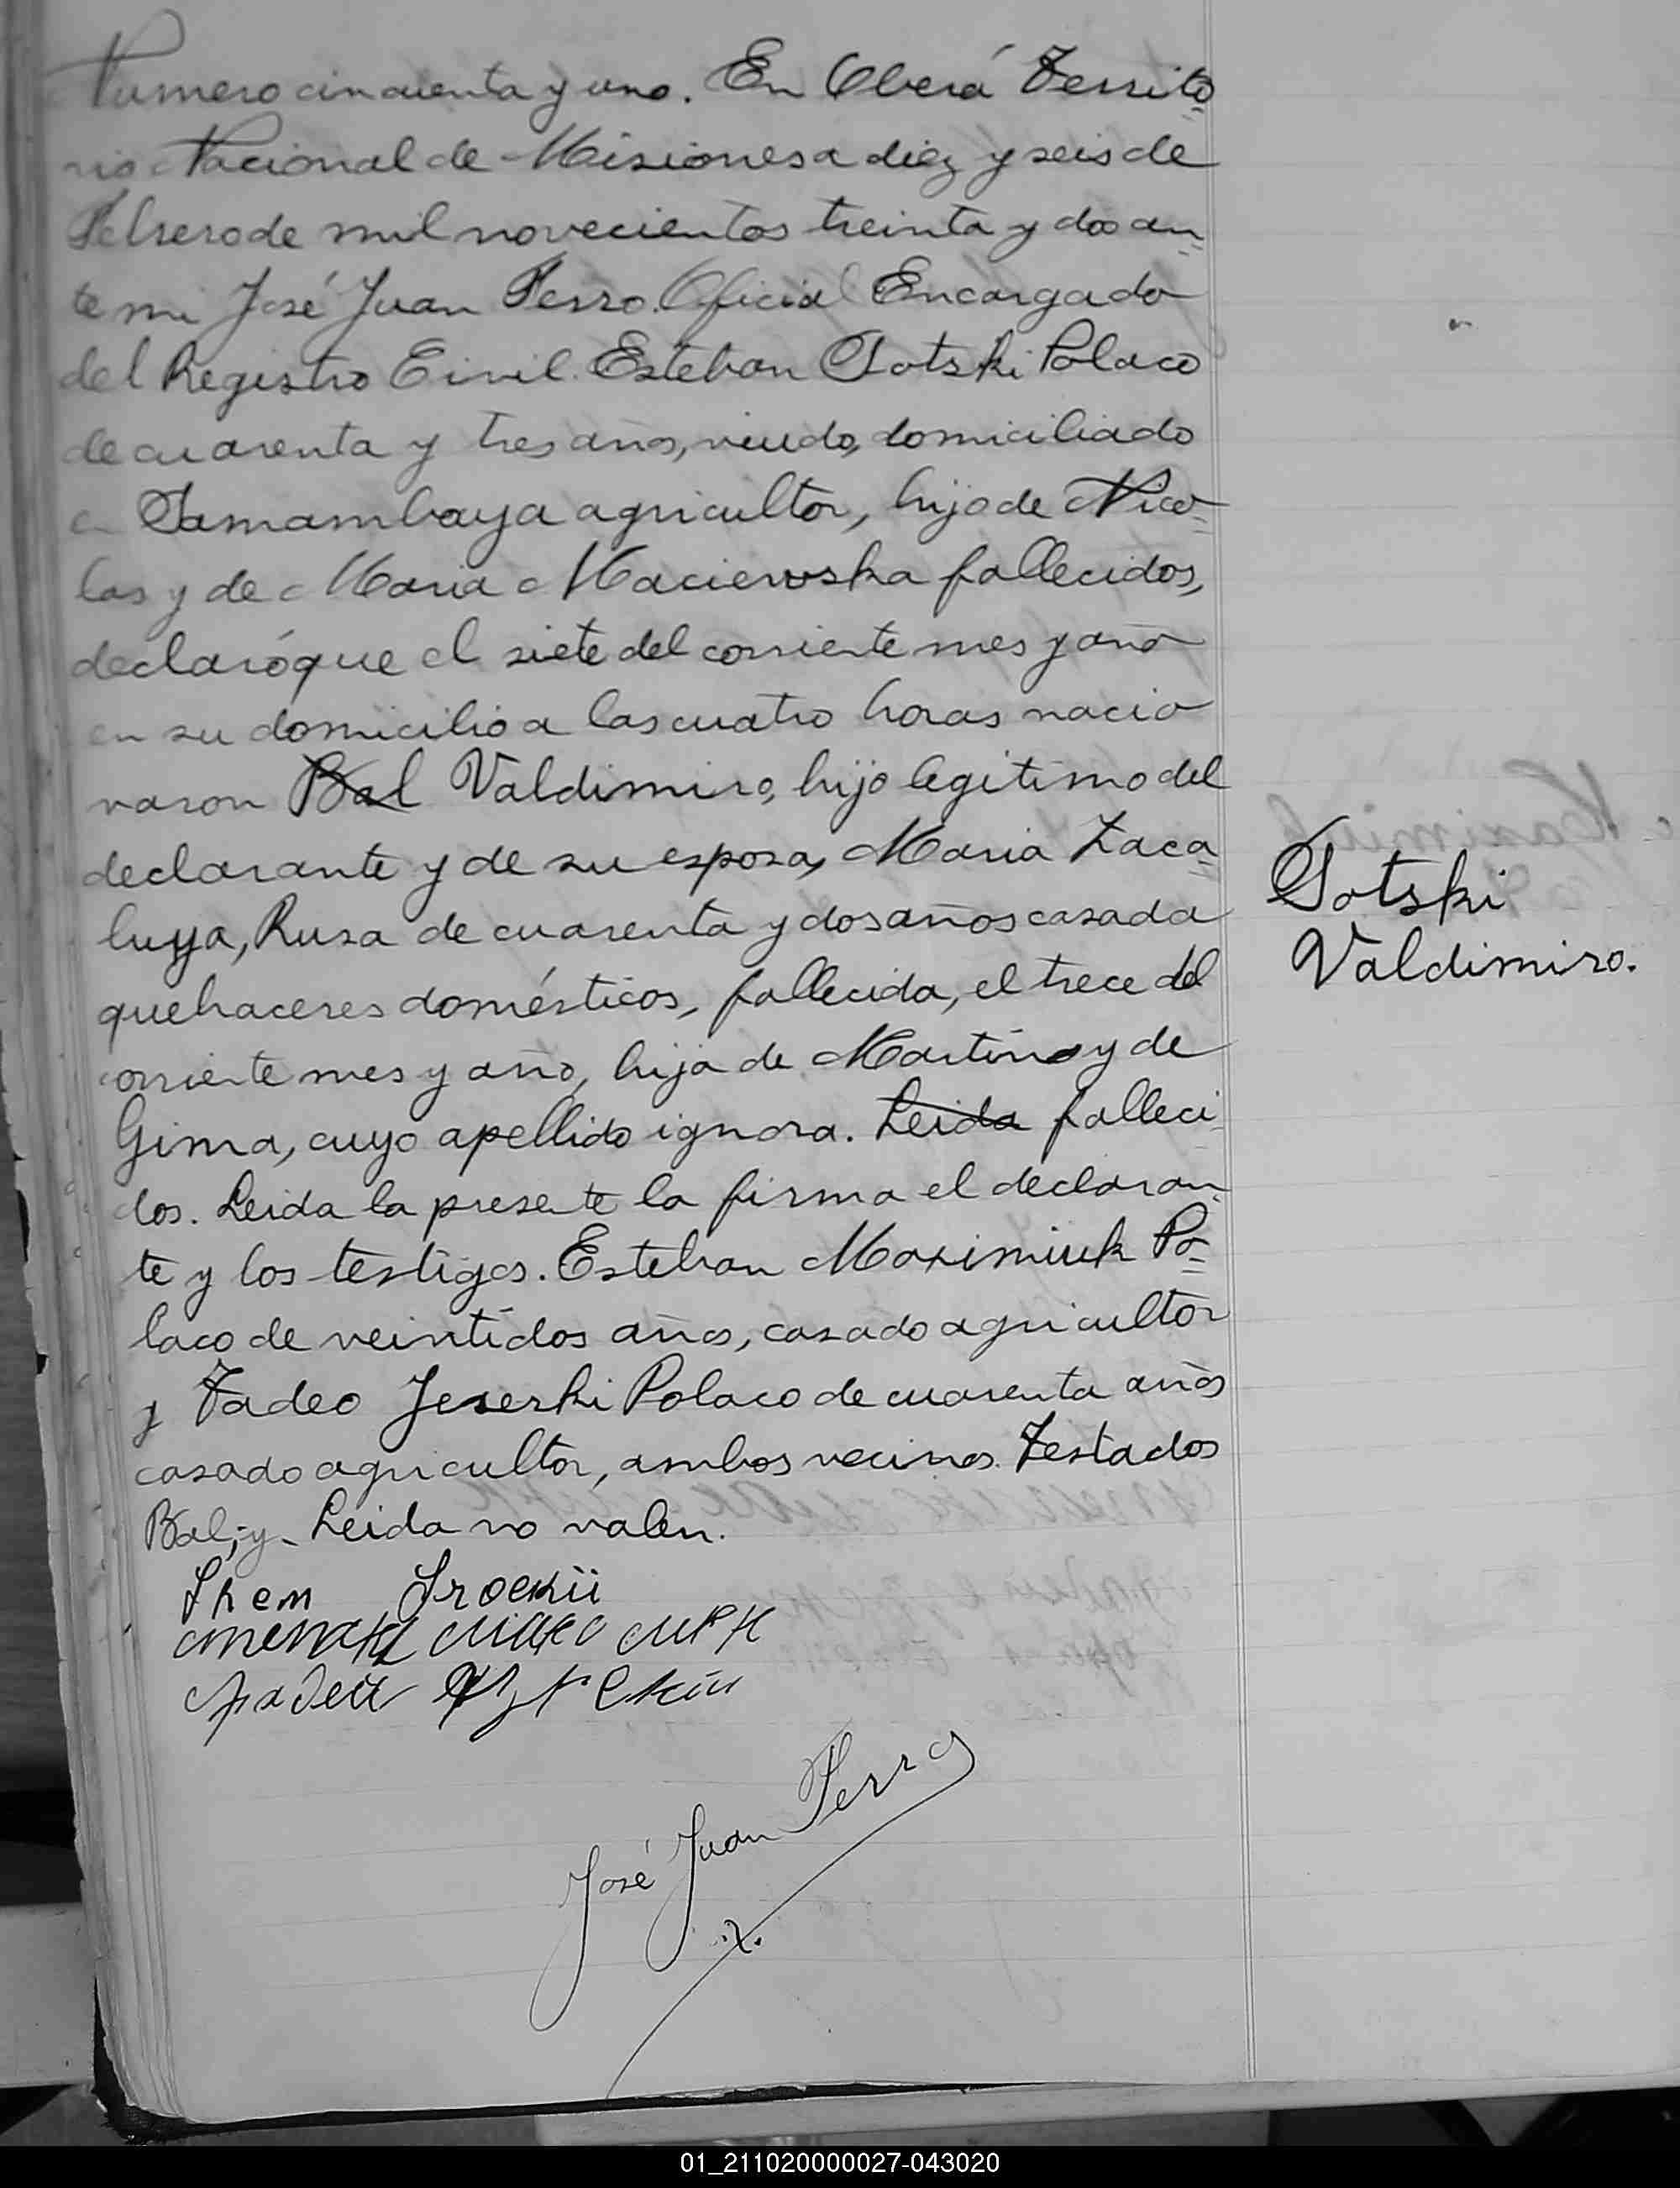 Numero cincuenta y uno. En Oberá Territo=
rio Nacional de Misiones a diez y seis de
Febrero de mil novecientos treinta y dos an=
te mi José Juan Ferro. Oficial Encargado
del Registro Civil. Esteban Sotski Polaco
de cuarenta y tres años, viudo, domiciliado
en Samambaya agricultor, hijo de Nico=
las y de Maria Maciewska fallecidos,
declaró que el siete del corriente mes y año
en su domicilio a las cuatro horas nacio
varon Bal Valdimiro, hijo legitimo del
declarante y de su esposa, Maria Zaca=
luya, Rusa de cuarenta y dos años casada
quehaceres domésticos, fallecida, el trece del
corriente mes y año, hija de Martin y de
Gima, cuyo apellido ignora. Leida falleci=
dos. Leida la presente la firma el declaran=
te y los testigos. Esteban Maximiuk Po=
laco de veintidos años, casado agricultor
y Tadeo Jeserki Polaco de cuarenta años
casado agricultor, ambos vecinos. Testados
Bal; y- Leida no valen.
Sotski
Valdimiro.
José Juan Ferro
01_211020000027-043020